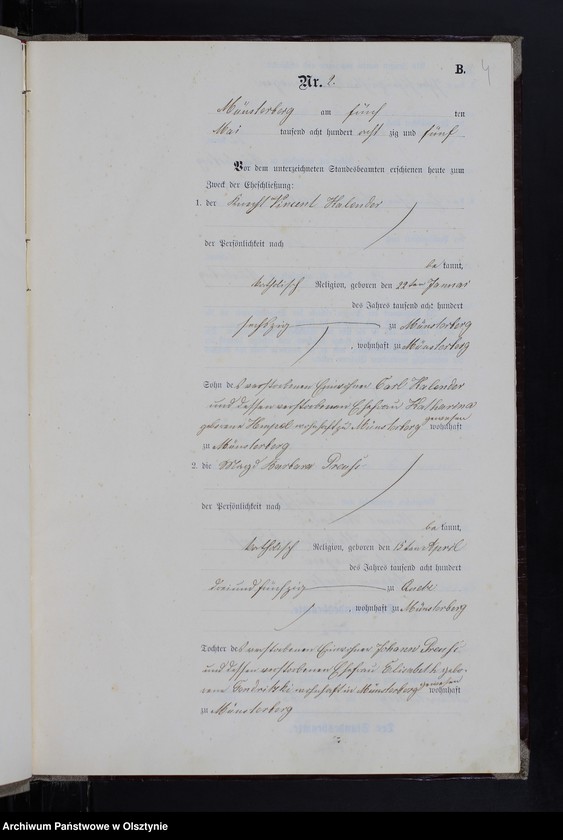 B.
4
Nr. 2.
Münsterberg am fünf ten
Mai tausend acht hundert acht zig und fünf
Vor dem unterzeichneten Standesbeamten erschienen heute zum
Zweck der Eheschließung:
1. der Knecht Vincent Kalender
der Persönlichkeit nach
be kannt,
katholisch Religion, geboren den 22ten Januar
des Jahres tausend acht hundert
sechszig zu Münsterberg
, wohnhaft zu Münsterberg
Sohn des verstorbenen Einwohner Carl Kalender
und dessen verstorbenen Ehefrau Katharina
geborene wohnhaft zu Münsterberg gewesen wohnhaft
zu Münsterberg
2. die Magd Barbara Preuß
der Persönlichkeit nach
be kannt,
katholisch Religion, geboren den 15ten April
des Jahres tausend acht hundert
dreiundfünfzig zu
, wohnhaft zu Münsterberg
Tochter des verstorbenen Einwohner Johann Preuß
und dessen verstorbenen Ehefrau Elisabeth gebo-
rene wohnhaft in Münsterberg gewesen wohnhaft
zu Münsterberg
Archiwum Państwowe w Olsztynie